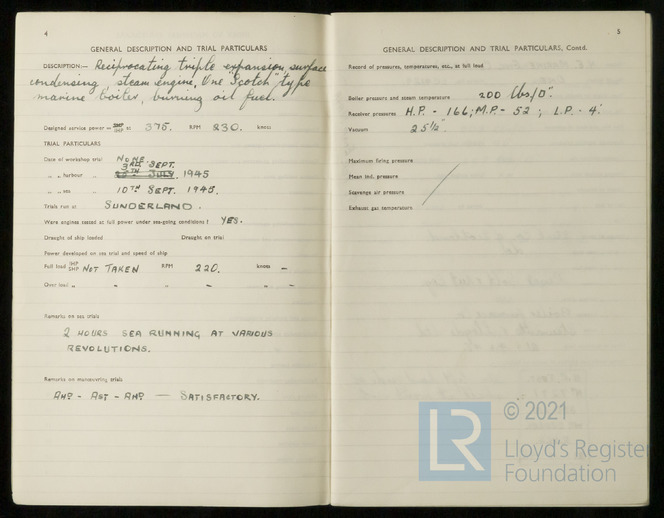 4
GENERAL DESCRIPTION AND TRIAL PARTICULARS
DESCRIPTION:— Reciprocating triple expansion, surface
condensing steam engine, One "Scotch" type
marine boiler, burning oil fuel.
Designed service power = SHP IHP at 375. RPM 230. knots
TRIAL PARTICULARS
Date of workshop trial NONE.
3RD SEPT.
„ „ harbour „ JULY, 1945
„ „ sea „ 10TH SEPT. 1945.
Trials run at SUNDERLAND.
Were engines tested at full power under sea-going conditions? YES.
Draught of ship loaded Draught on trial
Power developed on sea trial and speed of ship
Full load IHP SHP NOT TAKEN RPM 220. knots —
Over load „ „ „ „ „
Remarks on sea trials
2 HOURS SEA RUNNING AT VARIOUS
REVOLUTIONS.
Remarks on manœuvring trials
AHD - AST - AHD — SATISFACTORY.
5
GENERAL DESCRIPTION AND TRIAL PARTICULARS, Contd.
Record of pressures, temperatures, etc., at full load
Boiler pressure and steam temperature 200 lbs/□"
Receiver pressures H.P. - 166; M.P. - 52 ; L.P. - 4.
Vacuum 25½"
Maximum firing pressure
Mean ind. pressure
Scavenge air pressure
Exhaust gas temperature
LR © 2021
Lloyd's Register
Foundation